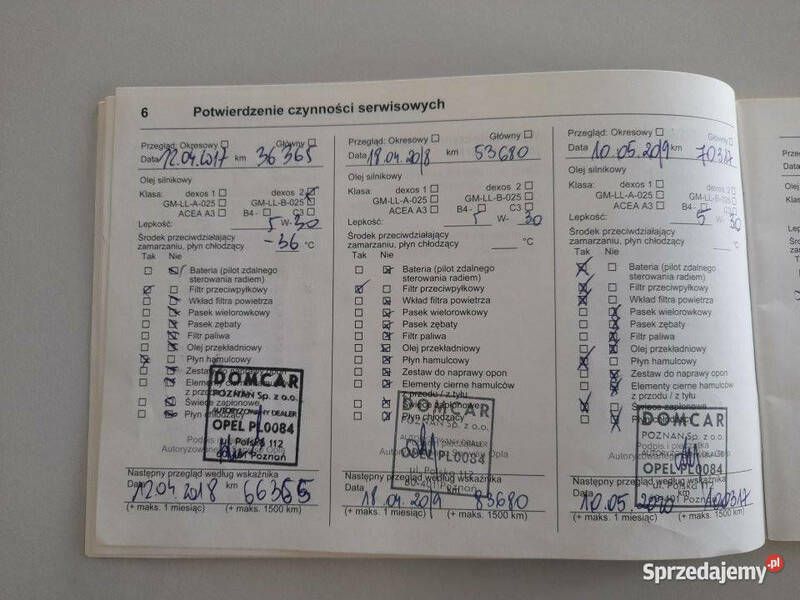 6 Potwierdzenie czynności serwisowych
Przegląd: Okresowy Główny
Data 12.04.2017 km 36365
Olej silnikowy
Klasa: dexos 1 dexos 2
GM-LL-A-025 GM-LL-B-025
ACEA A3 B4 - C3
Lepkość: 5 W- 30
Środek przeciwdziałający
zamarzaniu, płyn chłodzący -36 °C
Tak Nie
Bateria (pilot zdalnego
sterowania radiem)
Filtr przeciwpyłkowy
Wkład filtra powietrza
Pasek wielorowkowy
Pasek zębaty
Filtr paliwa
Olej przekładniowy
Płyn hamulcowy
Zestaw do naprawy opon
Elementy cierne hamulców
z przodu / z tyłu
Świece zapłonowe
Płyn chłodzący
DOMCAR
POZNAŃ Sp. z o.o.
AUTORYZOWANY DEALER
OPEL PL0084
ul. Polska 112
Poznań
Następny przegląd według wskaźnika
Data 12.04.2018 km 66365
(+ maks. 1 miesiąc) (+ maks. 1500 km)
Przegląd: Okresowy Główny
Data 18.04.2018 km 53680
Olej silnikowy
Klasa: dexos 1 dexos 2
GM-LL-A-025 GM-LL-B-025
ACEA A3 B4 - C3
Lepkość: 5 W- 30
Środek przeciwdziałający
zamarzaniu, płyn chłodzący °C
Tak Nie
Bateria (pilot zdalnego
sterowania radiem)
Filtr przeciwpyłkowy
Wkład filtra powietrza
Pasek wielorowkowy
Pasek zębaty
Filtr paliwa
Olej przekładniowy
Płyn hamulcowy
Zestaw do naprawy opon
Elementy cierne hamulców
z przodu / z tyłu
Świece zapłonowe
Płyn chłodzący
DOMCAR
POZNAŃ Sp. z o.o.
AUTORYZOWANY DEALER
OPEL PL0084
ul. Polska 112
Poznań
Następny przegląd według wskaźnika
Data 18.04.2019 km 83680
(+ maks. 1 miesiąc) (+ maks. 1500 km)
Przegląd: Okresowy Główny
Data 10.05.2019 km 70317
Olej silnikowy
Klasa: dexos 1 dexos 2
GM-LL-A-025 GM-LL-B-025
ACEA A3 B4 - C3
Lepkość: 5 W- 30
Środek przeciwdziałający
zamarzaniu, płyn chłodzący °C
Tak Nie
Bateria (pilot zdalnego
sterowania radiem)
Filtr przeciwpyłkowy
Wkład filtra powietrza
Pasek wielorowkowy
Pasek zębaty
Filtr paliwa
Olej przekładniowy
Płyn hamulcowy
Zestaw do naprawy opon
Elementy cierne hamulców
z przodu / z tyłu
Świece zapłonowe
Płyn chłodzący
DOMCAR
POZNAŃ Sp. z o.o.
Podpis i pieczątka
OPEL PL0084
ul. Polska 112
Poznań
Następny przegląd według wskaźnika
Data 10.05.2020 km 100317
(+ maks. 1 miesiąc) (+ maks. 1500 km)
Sprzedajemy.pl